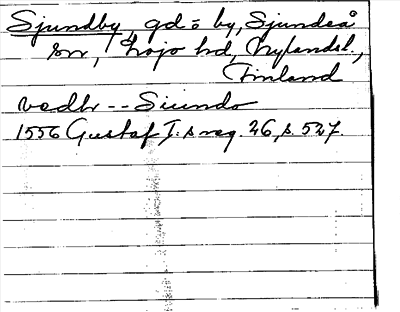 Sjundby, gd = by, Sjundeå
sn, Lojo hd, Nylandsl.,
Finland
vadhr -- Siundo
1556 Gustaf I.s reg. 26, s. 527.